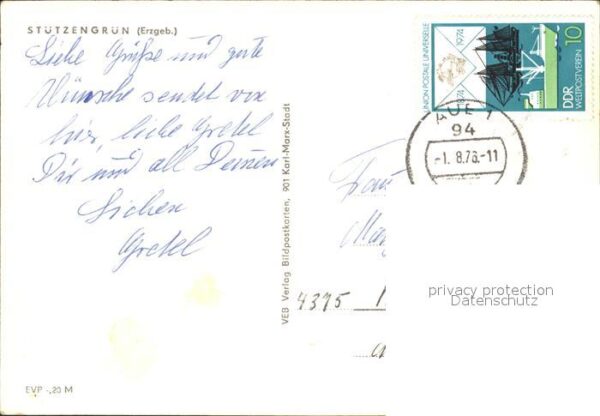 STÜTZENGRÜN (Erzgeb.)
Liebe Grüße und gute
Wünsche sendet von
hier, liebe Gretel
Dir und all Deinen
Lieben
Gretel
EVP -,20 M
VEB Verlag Bildpostkarten, 901 Karl-Marx-Stadt
UNION POSTALE UNIVERSELLE
1874 1974
10
DDR
WELTPOSTVEREIN
AUE 1
94
-1.8.76-11
4375
privacy protection
Datenschutz